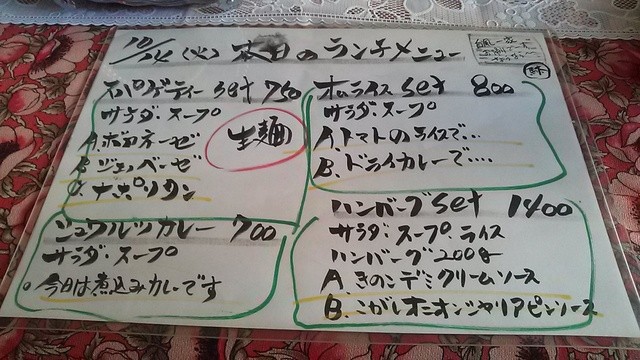 10/14 (火) 本日のランチメニュー
スパゲティー set 750
サラダ・スープ
A. ボロネーゼ
B. ジェノベーゼ
C. ナポリタン
生麺
オムライス set 800
サラダ・スープ
A. トマトのライスで…
B. ドライカレーで….
シュワルツカレー 700
サラダ・スープ
。今日は煮込みカレーです
ハンバーグ set 1400
サラダ・スープ・ライス
ハンバーグ 200g
A. きのこデミクリームソース
B. こがしオニオンジャリアピンソース